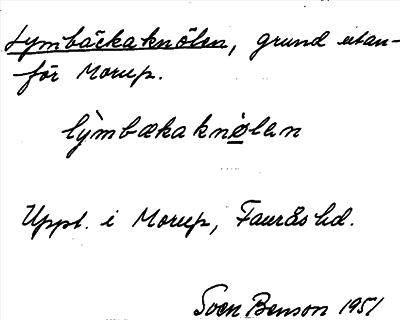 Lymbäckaknölen, grund utan-
för Morup.
lỳmbækaknølan
Uppt. i Morup, Faurås hd.
Sven Benson 1951